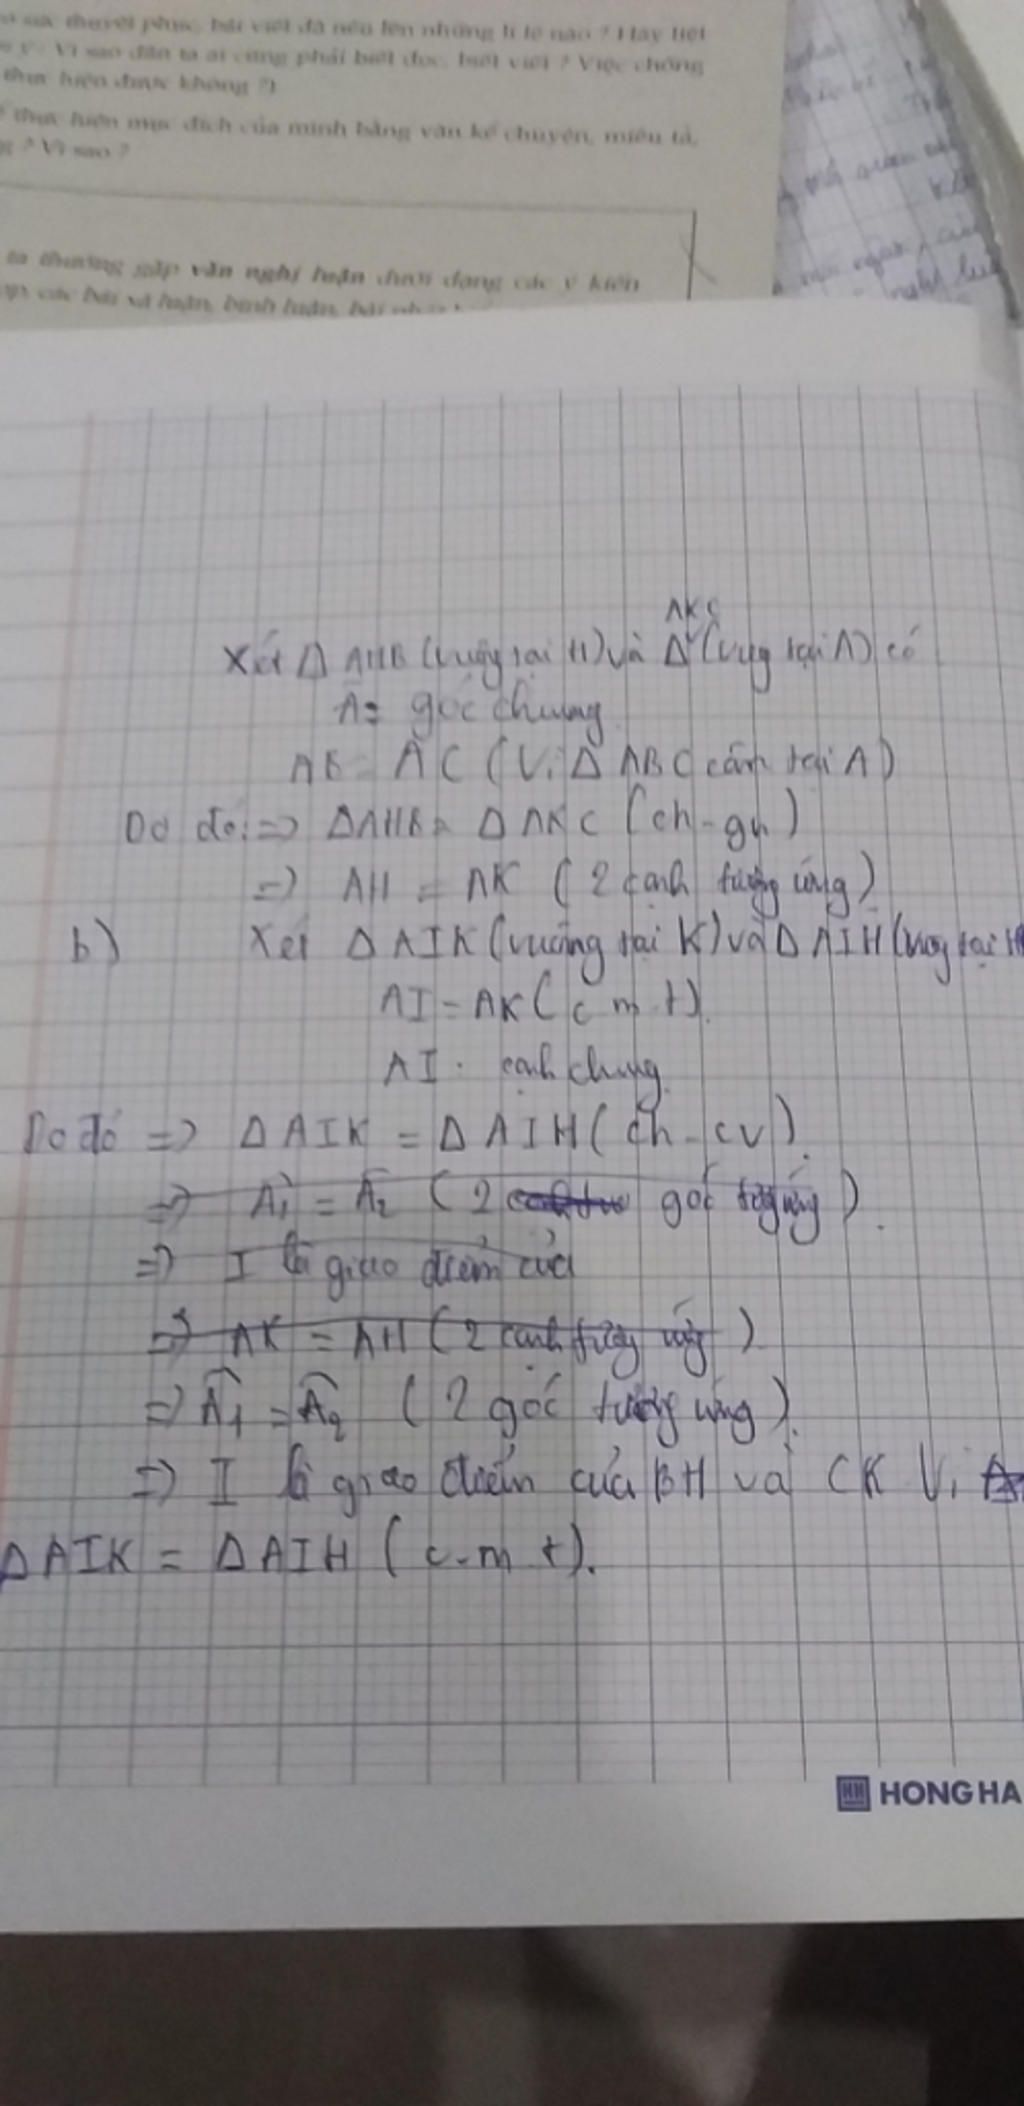 sức thuyết phục, bài viết đã nêu lên những lí lẽ nào ? Hãy liệt
Vì sao dân ta ai cũng phải biết đọc, biết viết ? Việc chống
thực hiện được không ?)
thực hiện mục đích của mình bằng văn kể chuyện, miêu tả,
? Vì sao ?
ta thường gặp văn nghị luận dưới dạng các ý kiến
các bài xã luận, bình luận,
AKC
Xét Δ AHB (vuông tại H) và Δ (vug tại A) có
A: góc chung
AB = AC (Vì Δ ABC cân tại A)
Do đó: => ΔAHB = Δ AKC (ch - gn)
=> AH = AK (2 cạnh tương ứng)
b) Xét Δ AIK (vuông tại K) và Δ AIH (vuog tại H
AI = AK (c m t).
AI : cạnh chung
Do đó => Δ AIK = Δ AIH (ch - cv).
=> A1 = A2 (2 góc tương ứng).
=> I là giao điểm của
=> AK = AH (2 cạnh tương ứng)
=> A1 = A2 (2 góc tương ứng).
=> I là giao điểm của BH và CK Vì
Δ AIK = Δ AIH (c.m t).
HONG HA